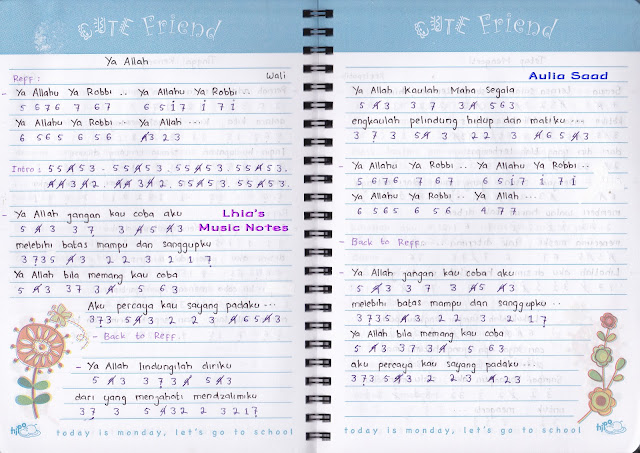 CUTE Friend
Ya Allah
Reff : Wali
- Ya Allahu Ya Robbi .. Ya Allahu Ya Robbi ..
5 6 7 6 7 6 7 6 5 i 7 i 7 i
Ya Allahu Ya Robbi .. Ya Allah ....
6 5 6 5 6 5 6 4̸ 3 2 3
Intro : 5 5 4̸ 5 3 . 5 5 4̸ 5 3 . 5 5 4̸ 5 3 . 5 5 4̸ 5 3 .
4̸ 4̸ 3 4̸ 2 4̸ 4̸ 3 4̸ 2 . 5 5 4̸ 5 3 . 5 5 4̸ 5 3 .
- Ya Allah jangan kau coba aku
5 4̸ 3 3 7 3 4̸ 5 4̸ 3
Lhia's
Music Notes
melebihi batas mampu dan sanggupku
3 7 3 5 4̸ 3 2 2 3 2 1 7
Ya Allah bila memang kau coba
5 4̸ 3 3 7 3 4̸ 5 6 3
Aku percaya kau sayang padaku ...
3 7 3 5 4̸ 3 2 2 3 4̸ 6 5 4̸ 3
- Back to Reff.
- Ya Allah lindungilah diriku
5 4̸ 3 3 7 3 4̸ 5 4̸ 3
dari yang menyakiti mendzalimiku
3 7 3 5 4̸ 3 2 2 3 2 1 7
hipo
today is monday, let's go to school
CUTE Friend
Aulia Saad
Ya Allah Kaulah Maha Segala
5 4̸ 3 3 7 3 4̸ 5 6 3
engkaulah pelindung hidup dan matiku ....
3 7 3 5 4̸ 3 2 2 3 4̸ 6 5 4̸ 3
- Ya Allahu Ya Robbi .. Ya Allahu Ya Robbi ..
5 6 7 6 7 6 7 6 5 i 7 i 7 i
Ya Allahu Ya Robbi .. Ya Allah ....
6 5 6 5 6 5 6 4 7 7
- Back to Reff:
- Ya Allah jangan kau coba aku
5 4̸ 3 3 7 3 4̸ 5 4̸ 3
melebihi batas mampu dan sanggupku ..
3 7 3 5 4̸ 3 2 2 3 2 1 7
Ya Allah bila memang kau coba
5 4̸ 3 3 7 3 4̸ 5 6 3
aku percaya kau sayang padaku ....
3 7 3 5 4̸ 3 2 2 3 4̸ 2 3
today is monday, let's go to school
hipo